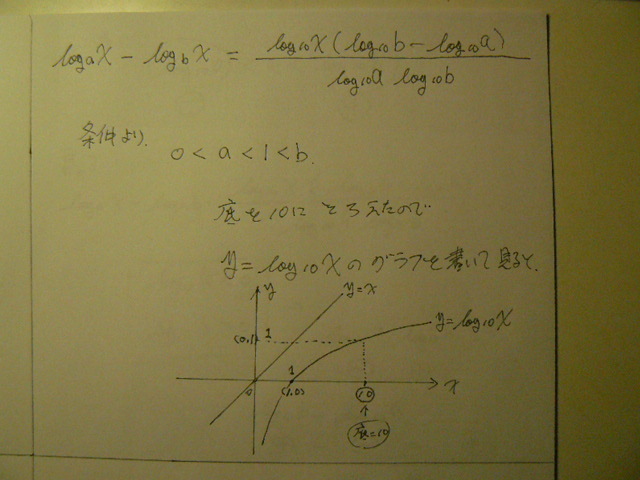 logaX − logbX = log10X(log10b − log10a) / log10a log10b
条件より、
0 < a < 1 < b.
底を10にとろえたので
y = log10X のグラフを書いて見ると、
y
y=x
(0.1) 1
y=log10X
0
1
(1.0)
10
x
底=10